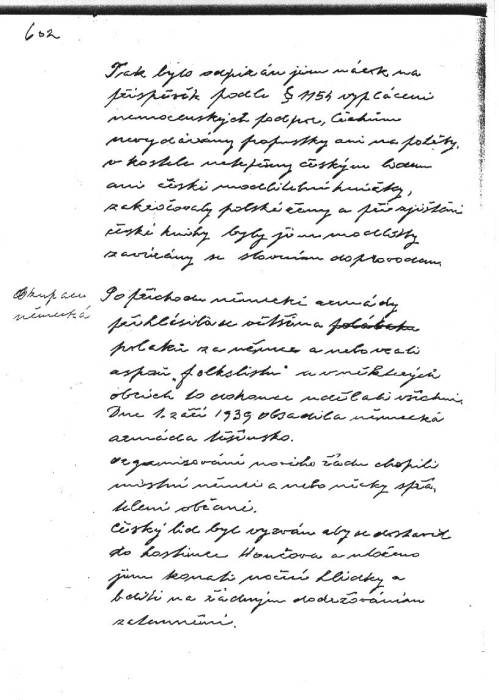 602
Tak bylo odpírán jim nárok na
příspěvěk podle § 1154 vyplácení
nemocenských podpor, Čechům
nevydávány propustky ani na pohřby.
v kostele netrpěny českým lidem
ani české modlitební knížky,
zakročovaly polské ženy a při zjištění
české knihy byly jim modlitby
zavírány se slovním doprovodem.
Okupace
německá
Po příchodu německé armády
přihlásila se většina
poláků za němce a nebo vzali
aspoň „folkslistu" a v některých
obcích to dokonce udělali všichni.
Dne 1. září 1939 obsadila německá
armáda těšínsko.
organisování nového řádu chopili
místní němci a nebo německy
občané.
Český lid byl vyzván aby se dostavil
do hostince Hančova a uloženo
jim konati noční hlídky a
bdíti na řádným dodržováním
zatemnění.